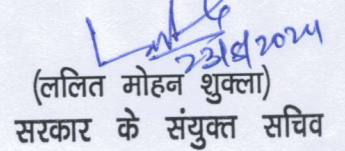 23/8/2024
(ललित मोहन शुक्ला)
सरकार के संयुक्त सचिव